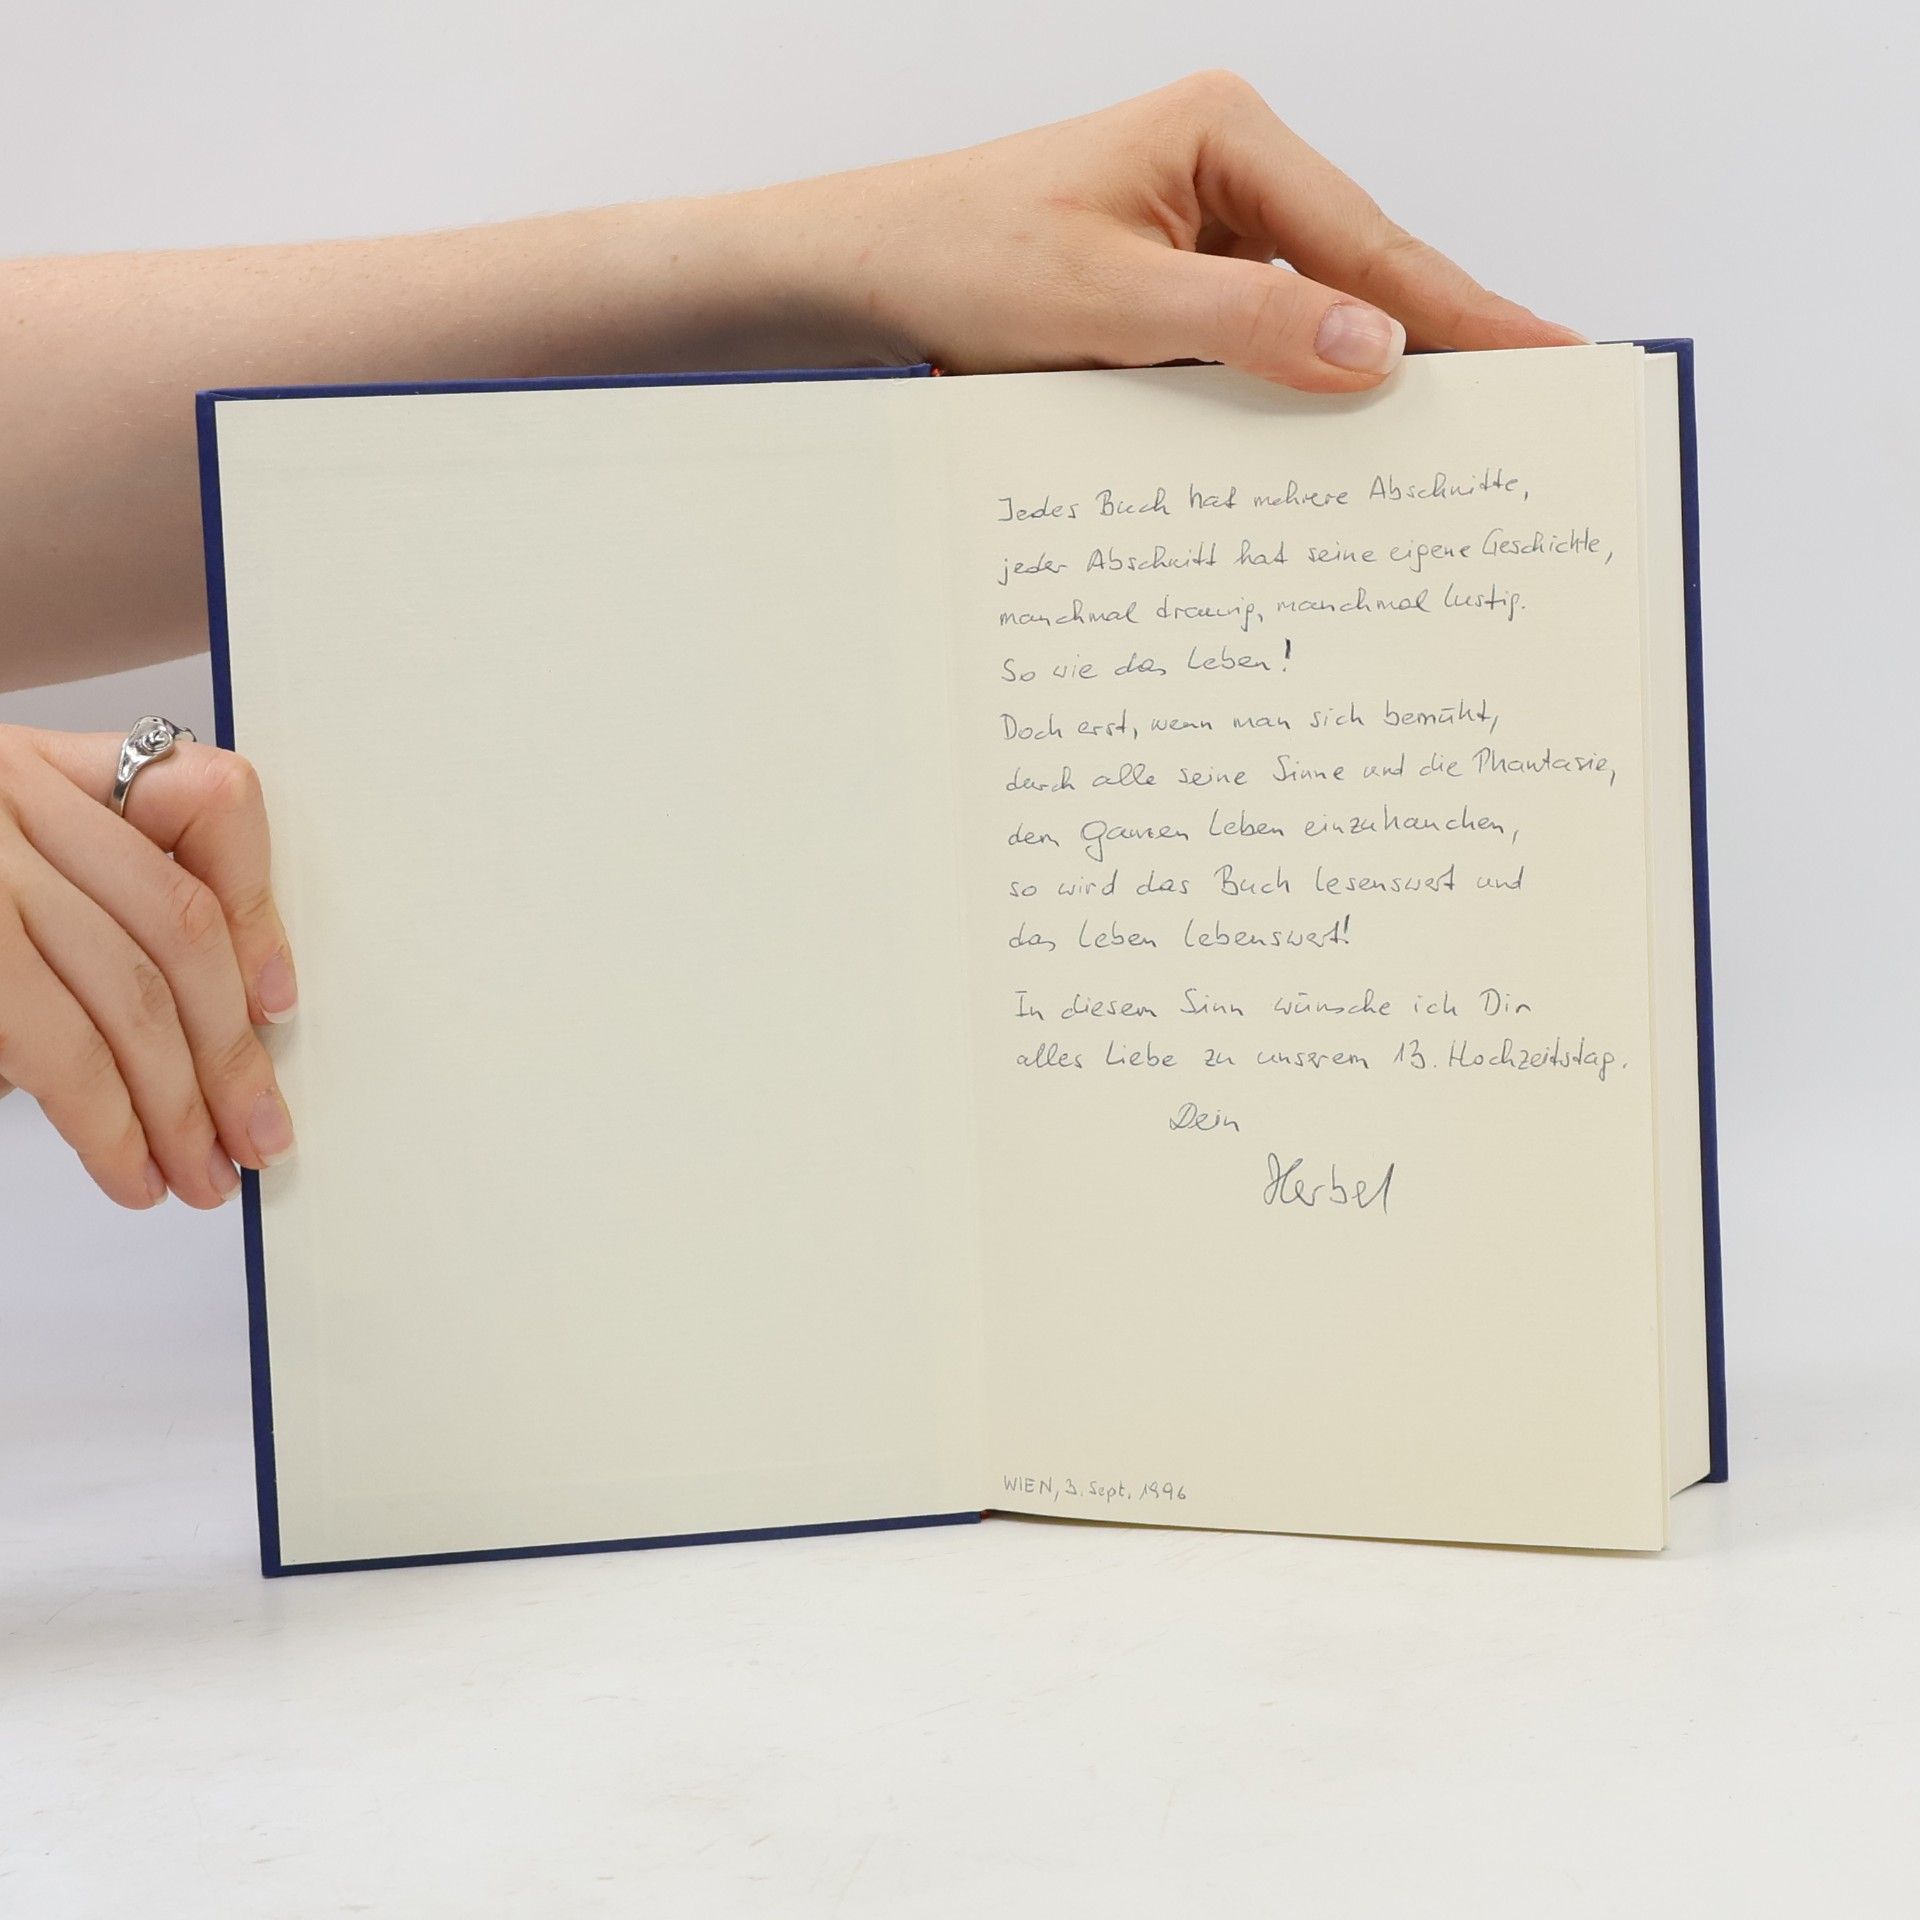 Jedes Buch hat mehrere Abschnitte,
jeder Abschnitt hat seine eigene Geschichte,
manchmal traurig, manchmal lustig.
So wie das Leben!
Doch erst, wenn man sich bemüht,
durch alle seine Sinne und die Phantasie,
dem Ganzen Leben einzuhauchen,
so wird das Buch lesenswert und
das Leben lebenswert!
In diesem Sinn wünsche ich Dir
alles Liebe zu unserem 13. Hochzeitstag.
Dein
WIEN, 3. Sept. 1996